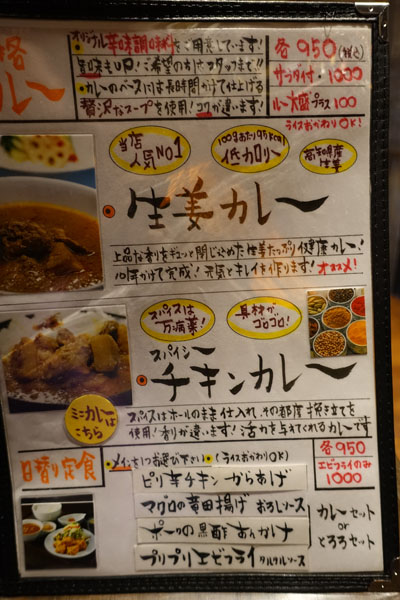 カレー
・オリジナル辛味調味料をご用意しています!
辛味もUP!ご希望の方はスタッフまで!!
・カレーのベースには長時間かけて仕上げる
贅沢なスープを使用!コクが違います!
各950(税込)
サラダ付・1000
ルー大盛プラス100
ライスおかわりOK!
当店
人気No1
100gあたり95kcal
低カロリー
高知県産
生姜
生姜カレー
上品な香りをギュッと閉じ込めた生姜たっぷり健康カレー!
10時間かけて完成!元気とキレイを作ります!オススメ!
スパイスは
万病薬!
具材が
ゴロゴロ!
スパイシー
チキンカレー
ミニカレーは
こちら
スパイスはホールのまま仕入れ、その都度挽き立てを
使用!香りが違います!活力を与えてくれるカレーです
日替り定食
・メインを1つお選び下さい・(ライスおかわりOK)
各950
エビフライのみ
1000
ピリ辛チキンからあげ
マグロの竜田揚げ おろしソース
ポークの黒酢あんかけ
プリプリエビフライ タルタルソース
カレーセット
or
とろろセット